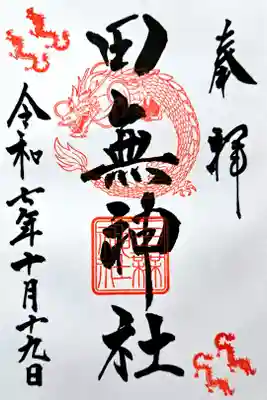 奉拝
田無神社
令和七年十月十九日